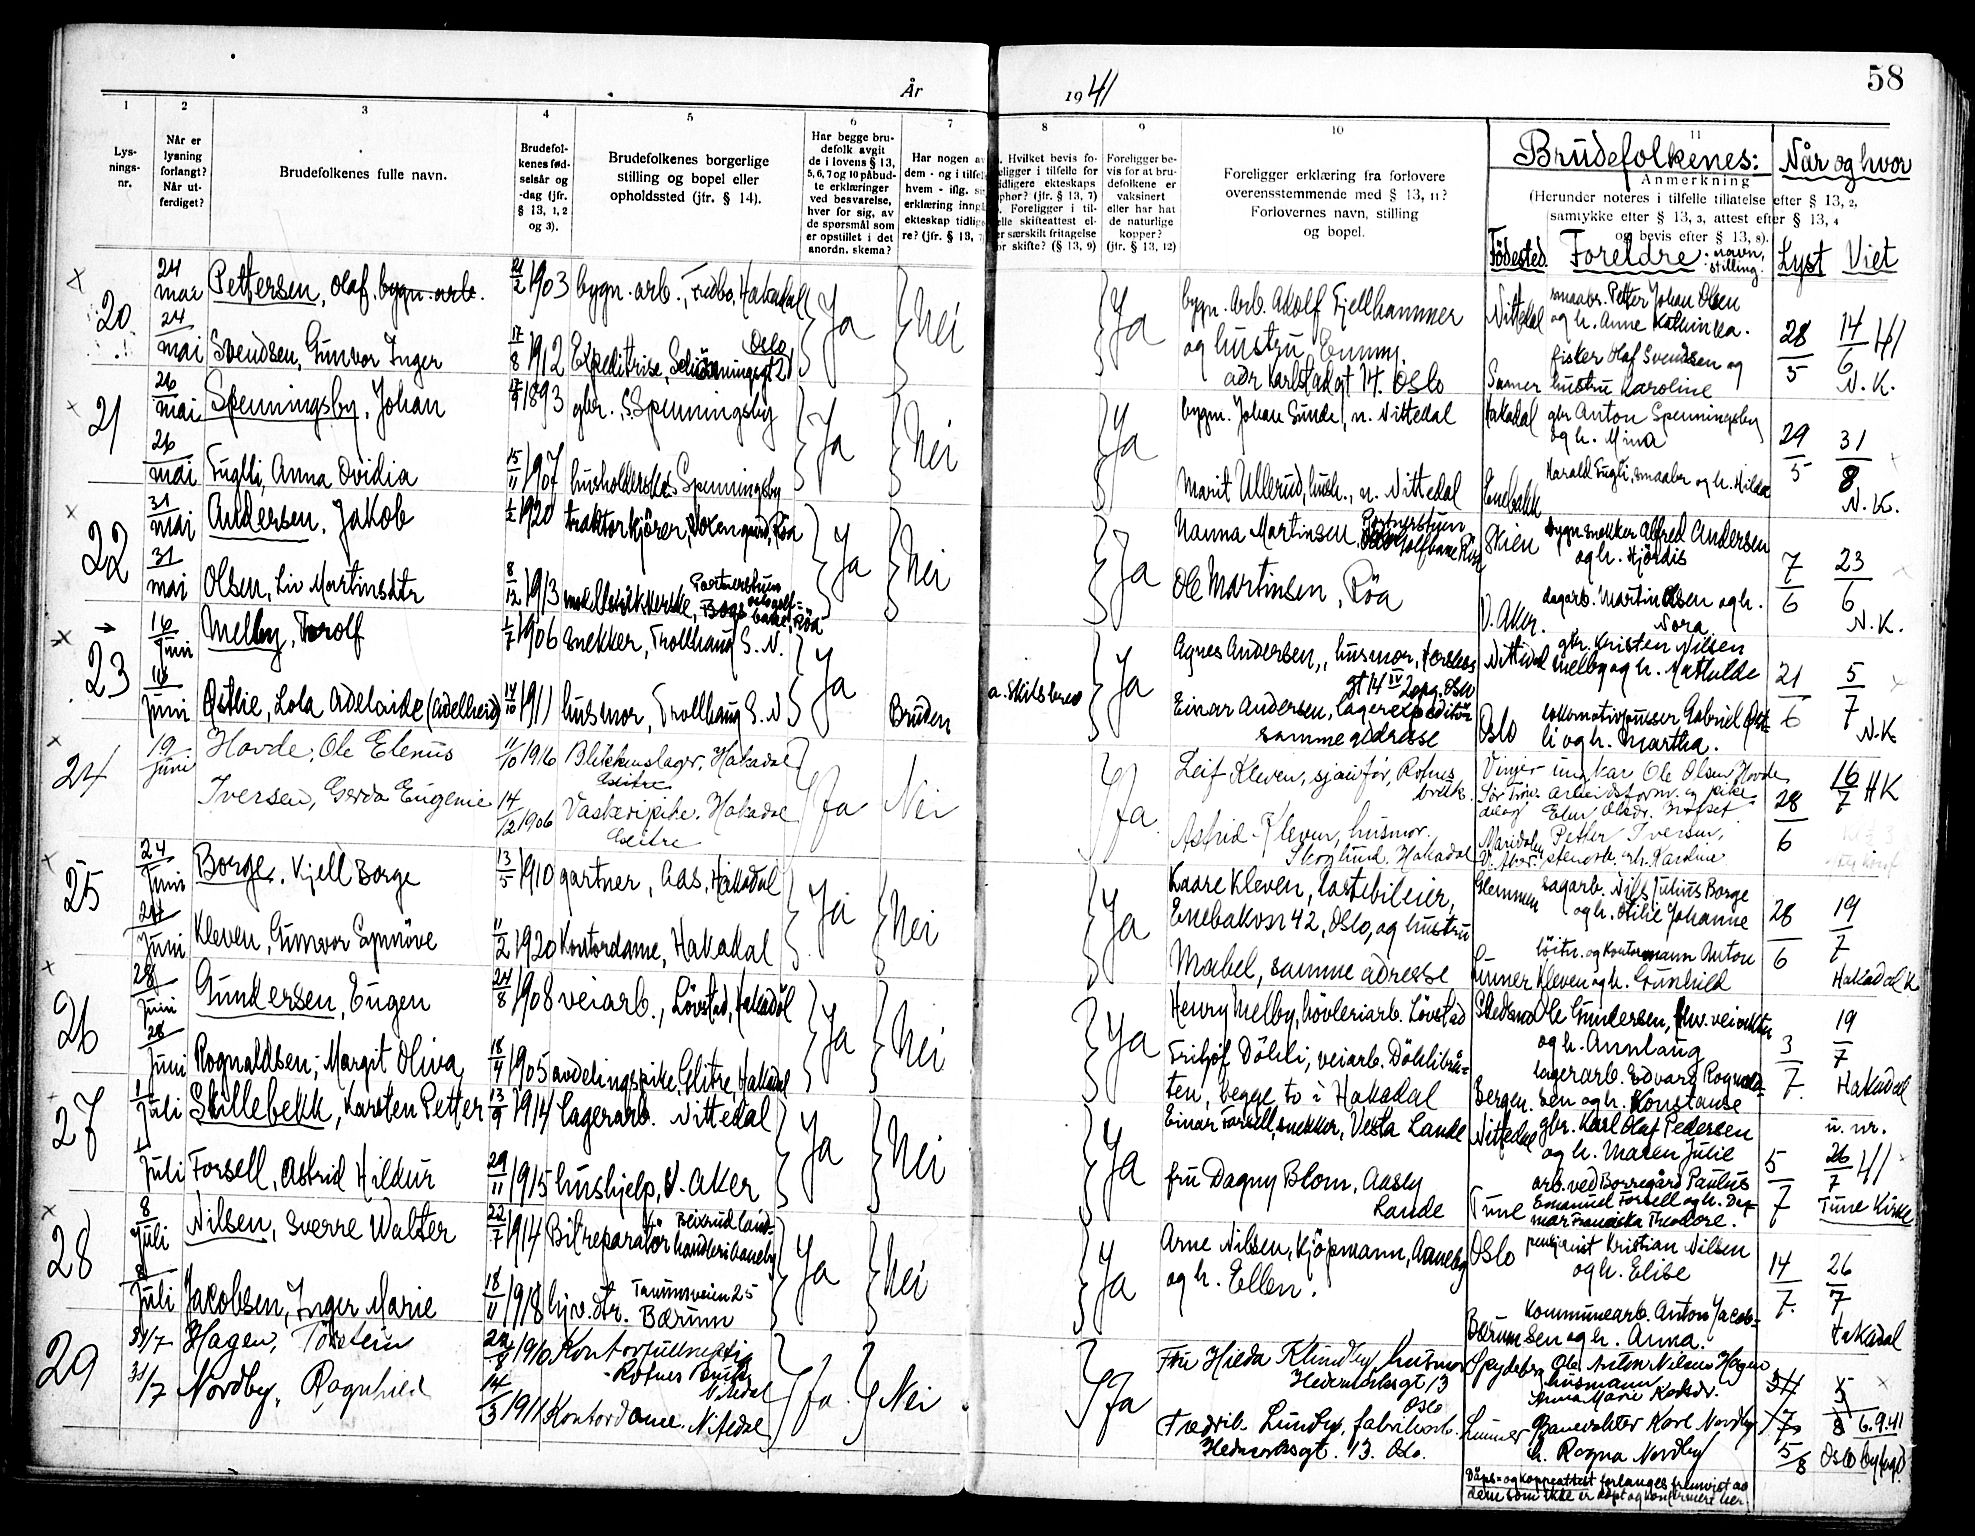 År 1941
58
1 2 3 4 5 6 7 8 9 10 11
Lysningsnr.
Når er lysning forlangt? Når utferdiget?
Brudefolkenes fulle navn.
Brudefolkenes fødselsår og -dag (jfr. § 13, 1, 2 og 3).
Brudefolkenes borgerlige stilling og bopel eller opholdssted (jfr. § 14).
Har begge brudefolk avgit de i lovens § 13, 5, 6, 7 og 10 påbudte erklæringer ved besvarelse, hver for sig, av de spørsmål som er opstillet i det anordn. skema?
Foreligger bevis for at brudefolkene er vaksinert eller har hat de naturlige kopper? (jfr. § 13, 12)
Foreligger erklæring fra forlovere overensstemmende med § 13, 11? Forlovernes navn, stilling og bopel.
Brudefolkenes:
Anmerkning
(Herunder noteres i tilfelle tillatelse efter § 13, 2, samtykke efter § 13, 3, attest efter § 13, 4 og bevis efter § 13, 8).
Fødested Foreldre: navn, stilling.
Når og hvor
Lyst Viet
20
24 mai Pettersen, Olaf, bygn. arb. 21/2 1903 bygn. arb., Hakadal
24 mai Svendsen, Gunvor Inger 17/8 1912 Expeditrise, Oslo
Ja Nei Ja
bygn. arb. Adolf Fjellhammer
og hustru Emmy.
adr Karlstadgt 14. Oslo
Nittedal smaabr. Petter Johan Olsen
og h. Anne Kathinka.
fisker Olaf Svendsen og
hustru Karoline
28/5 14/6 41
N. K.
21
26 mai Spenningsby, Johan 1893 gbr. S. Spenningsby
26 mai Fugli, Anna Ovidia 15/11 1907 husholderske Spenningsby
Ja Nei Ja
bygm. Johan Sunde, n. Nittedal
Marit Ullerud, hush., n. Nittedal
Hakadal gbr Anton Spenningsby
og h. Mina
Enebakk Harald Fugli, smaabr og h. Hilda
29/5 31/8
N. K.
22
31 mai Andersen, Jakob 1/2 1920 traktorkjører, Røa
31 mai Olsen, Liv Martinsdtr 8/12 1913 Røa
Ja Nei Ja
Nanna Martinsen
Ole Martinsen, Røa
Skien bygn snekker Alfred Andersen
og h. Hjördis
V. Aker. dagarb. Martin Olsen og h.
Nora
7/6 23/6
N. K.
23
16 juni Melby, Torolf 1/7 1906 snekker, Trollhaug S. N.
16 juni Østlie, Lola Adelaide (Adelheid) 14/10 1911 husmor, Trollhaug S. N
Ja Bruden a. Skilsbrev Ja
Agnes Andersen, husmor,
gt 14 IV 2opg. Oslo
Einar Andersen, lagerexpeditör
samme adresse
Nittedal gbr. Kristen Nilsen
Melby og h. Mathilde
Oslo lokomotivpusser Gabriel Østli
og h. Martha.
21/6 5/7
N. K.
24
19 juni Hovde, Ole Elenus 11/10 1916 Blikkenslager, Hakadal
Iversen, Gerda Eugenie 14/12 1906 Vaskeripike. Hakadal
Elitre
Ja Nei Ja
Leif Kleven, sjåiför, Rotnes
bruk.
Astrid Kleven, husmor.
Skoglund, Hakadal
ungkar Ole Olsen Hovde
Petter Iversen,
h. Karoline
28/6 16/7 HK
25
24 juni Borge, Kjell Borge 13/5 1910 gartner, Aas, Hakadal
24 juni Kleven, Gunvor Synnöve 11/2 1920 Kontordame, Hakadal
Ja Nei Ja
Kaare Kleven, lastebileier,
Enebakvn 42, Oslo, og hustru
Mabel, samme adresse
Glemmen sagarb. Nils Julius Borge
og h. Otilie Johanne
Lunner löitn. og kontormann Anton
Kleven og h. Gunhild
28/6 19/7
Hakadal K
26
28 juni Gundersen, Eugen 24/8 1908 veiarb., Lövstad, Hakadal
28 juni Rognaldsen, Margit Oliva 18/4 1905 avdelingspike, Elitre, Hakadal
Ja Nei Ja
Henry Melby, hövleriarb. Lövstad
Fritjof Döhli, veiarb. Döhlibråten,
begge to i Hakadal
Skedsmo Ole Gundersen,
og h. Annlaug
Bergen. lagerarb. Edvard Rognaldsen
og h. Konstanse
3/7 19/7 Hakadal
27
1 juli Skillebekk, Karsten Petter 13/9 1914 lagerarb. Nittedal
1 juli Forsell, Astrid Hildur 29/11 1915 hushjelp, V. Aker
Ja Nei Ja
Einar Forsell, snekker, Vesta Lande
fru Dagny Blom, Aasly
Lande
Nittedal gbr. Karl Olaf Pedersen
og h. Maren Julie
Tune arb. ved Borregård Paulus
Emanuel Forsell og h. Dagmar
Franciska Theodore.
5/7 u. nr. 26/7 41
Tune Kirke
28
8 juli Nilsen, Sverre Walter 22/7 1914 Bilreparatör
8 juli Jakobsen, Inger Marie 18/11 1918 hjv. dtr. Tanumsveien 25
Bærum
Ja Nei Ja
Arne Nilsen, Kjöpmann, Aaneby
og h. Ellen.
Oslo pensjonist Kristian Nilsen
og h. Elise
Bærum kommunearb. Anton Jacobsen
og h. Anna.
14/7 26/7
Hakadal
29
31/7 Hagen, Torstein 1910 Kontorfullmektig
Rotnes Bruk
Nittedal
31/7 Nordby, Ragnhild 14/3 1911 Kontordame. Nittedal
Ja. Nei Ja
Fru Hilda Klundby, husmor
Hedemarksgt 13
Oslo
Fredrik Lundby, fabrikarb.
Hedmarksgt. 13. Oslo.
Spydeberg Ole Anton Nilsen Hagen
husmann
Anna Marie
Lunner Banevokter Karl Nordby
h. Ragna Nordby
5/8 6.9.41
Oslo byfogd.
Dåps- og koppeattest forlanges fremvist av
dem som ikke er döpt og konfirmert her.